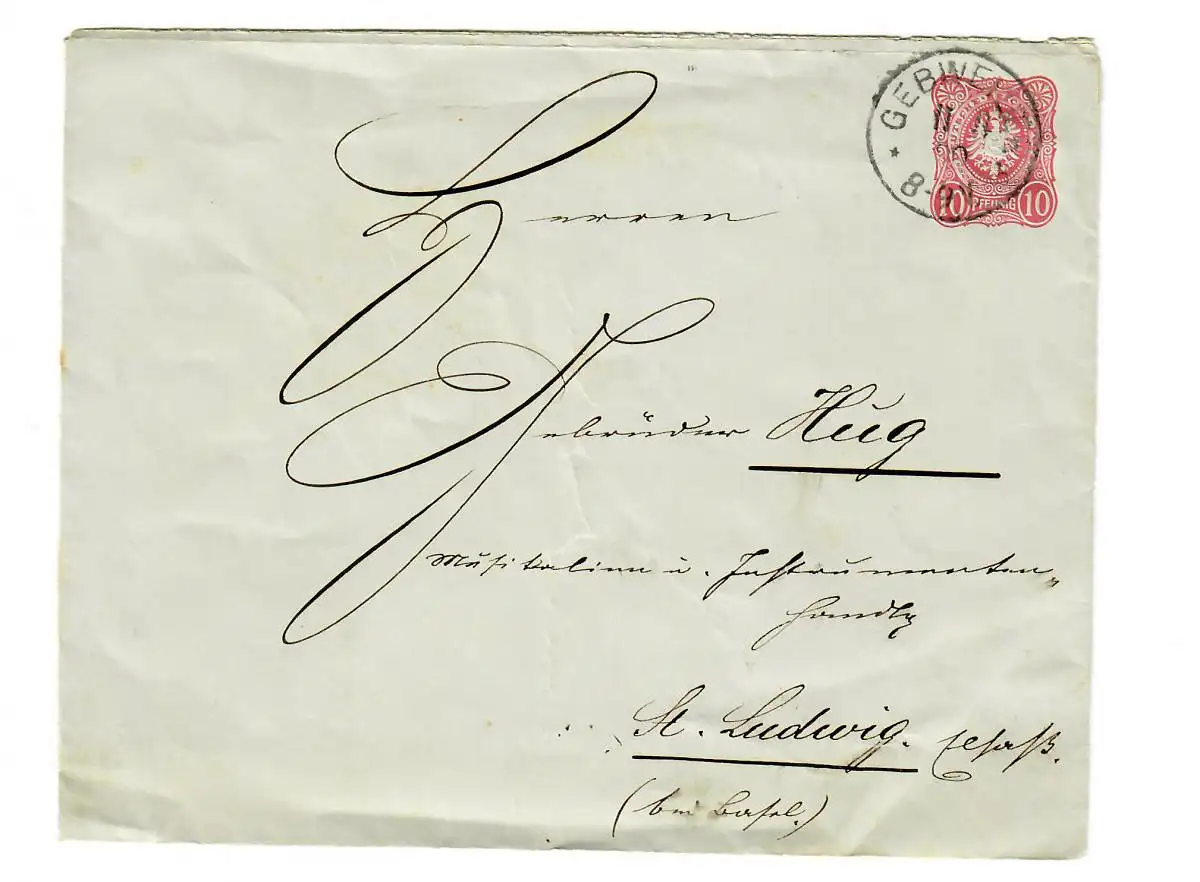 GEBWE
11
8-9
10 PFENNIG 10
Herren
Gebrüder Hug
Musikalien u. Instrumenten-
Handlg
St. Ludwig. Elsaß.
(bei Basel.)